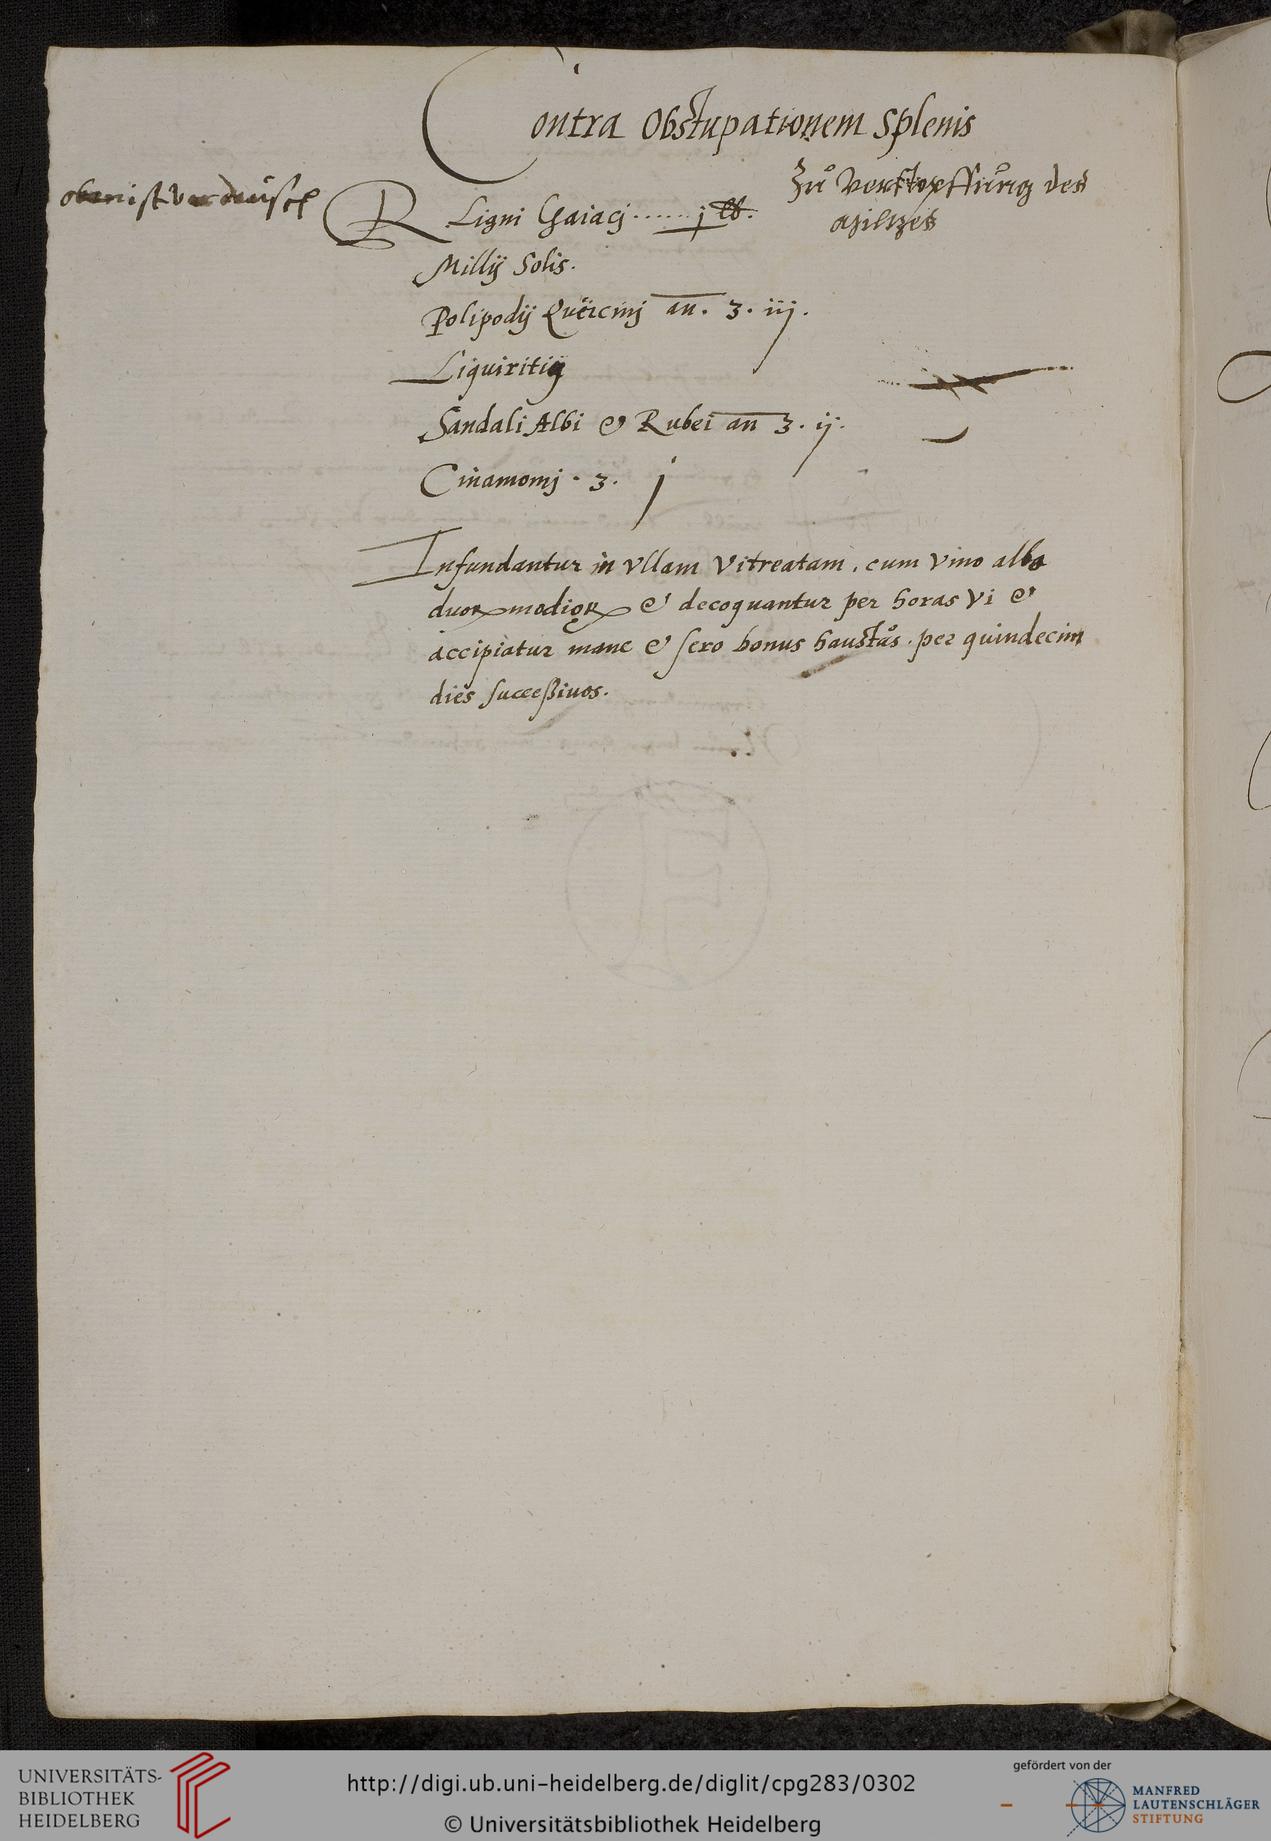 Contra Obstupationem Splenis
Zu Verstopffung des
Miltzes
oben ist verdeusch
℞ Ligni Gaiacj ...... j ℔.
Millij Solis.
Polipodij Quercinj an. ʒ. iij.
Liquiritię
Sandali Albi & Rubei an ʒ. ij.
Cinamomj. ʒ. j
Infundantur in Vllam Vitreatam, cum Vino albo
duoꝝ modioꝝ & decoquantur per horas Vi &
accipiatur mane & sero bonus haustus. per quindecim
dies succeßiuos.
UNIVERSITÄTS-
BIBLIOTHEK
HEIDELBERG
http://digi.ub.uni-heidelberg.de/diglit/cpg283/0302
© Universitätsbibliothek Heidelberg
gefördert von der
MANFRED
LAUTENSCHLÄGER
STIFTUNG